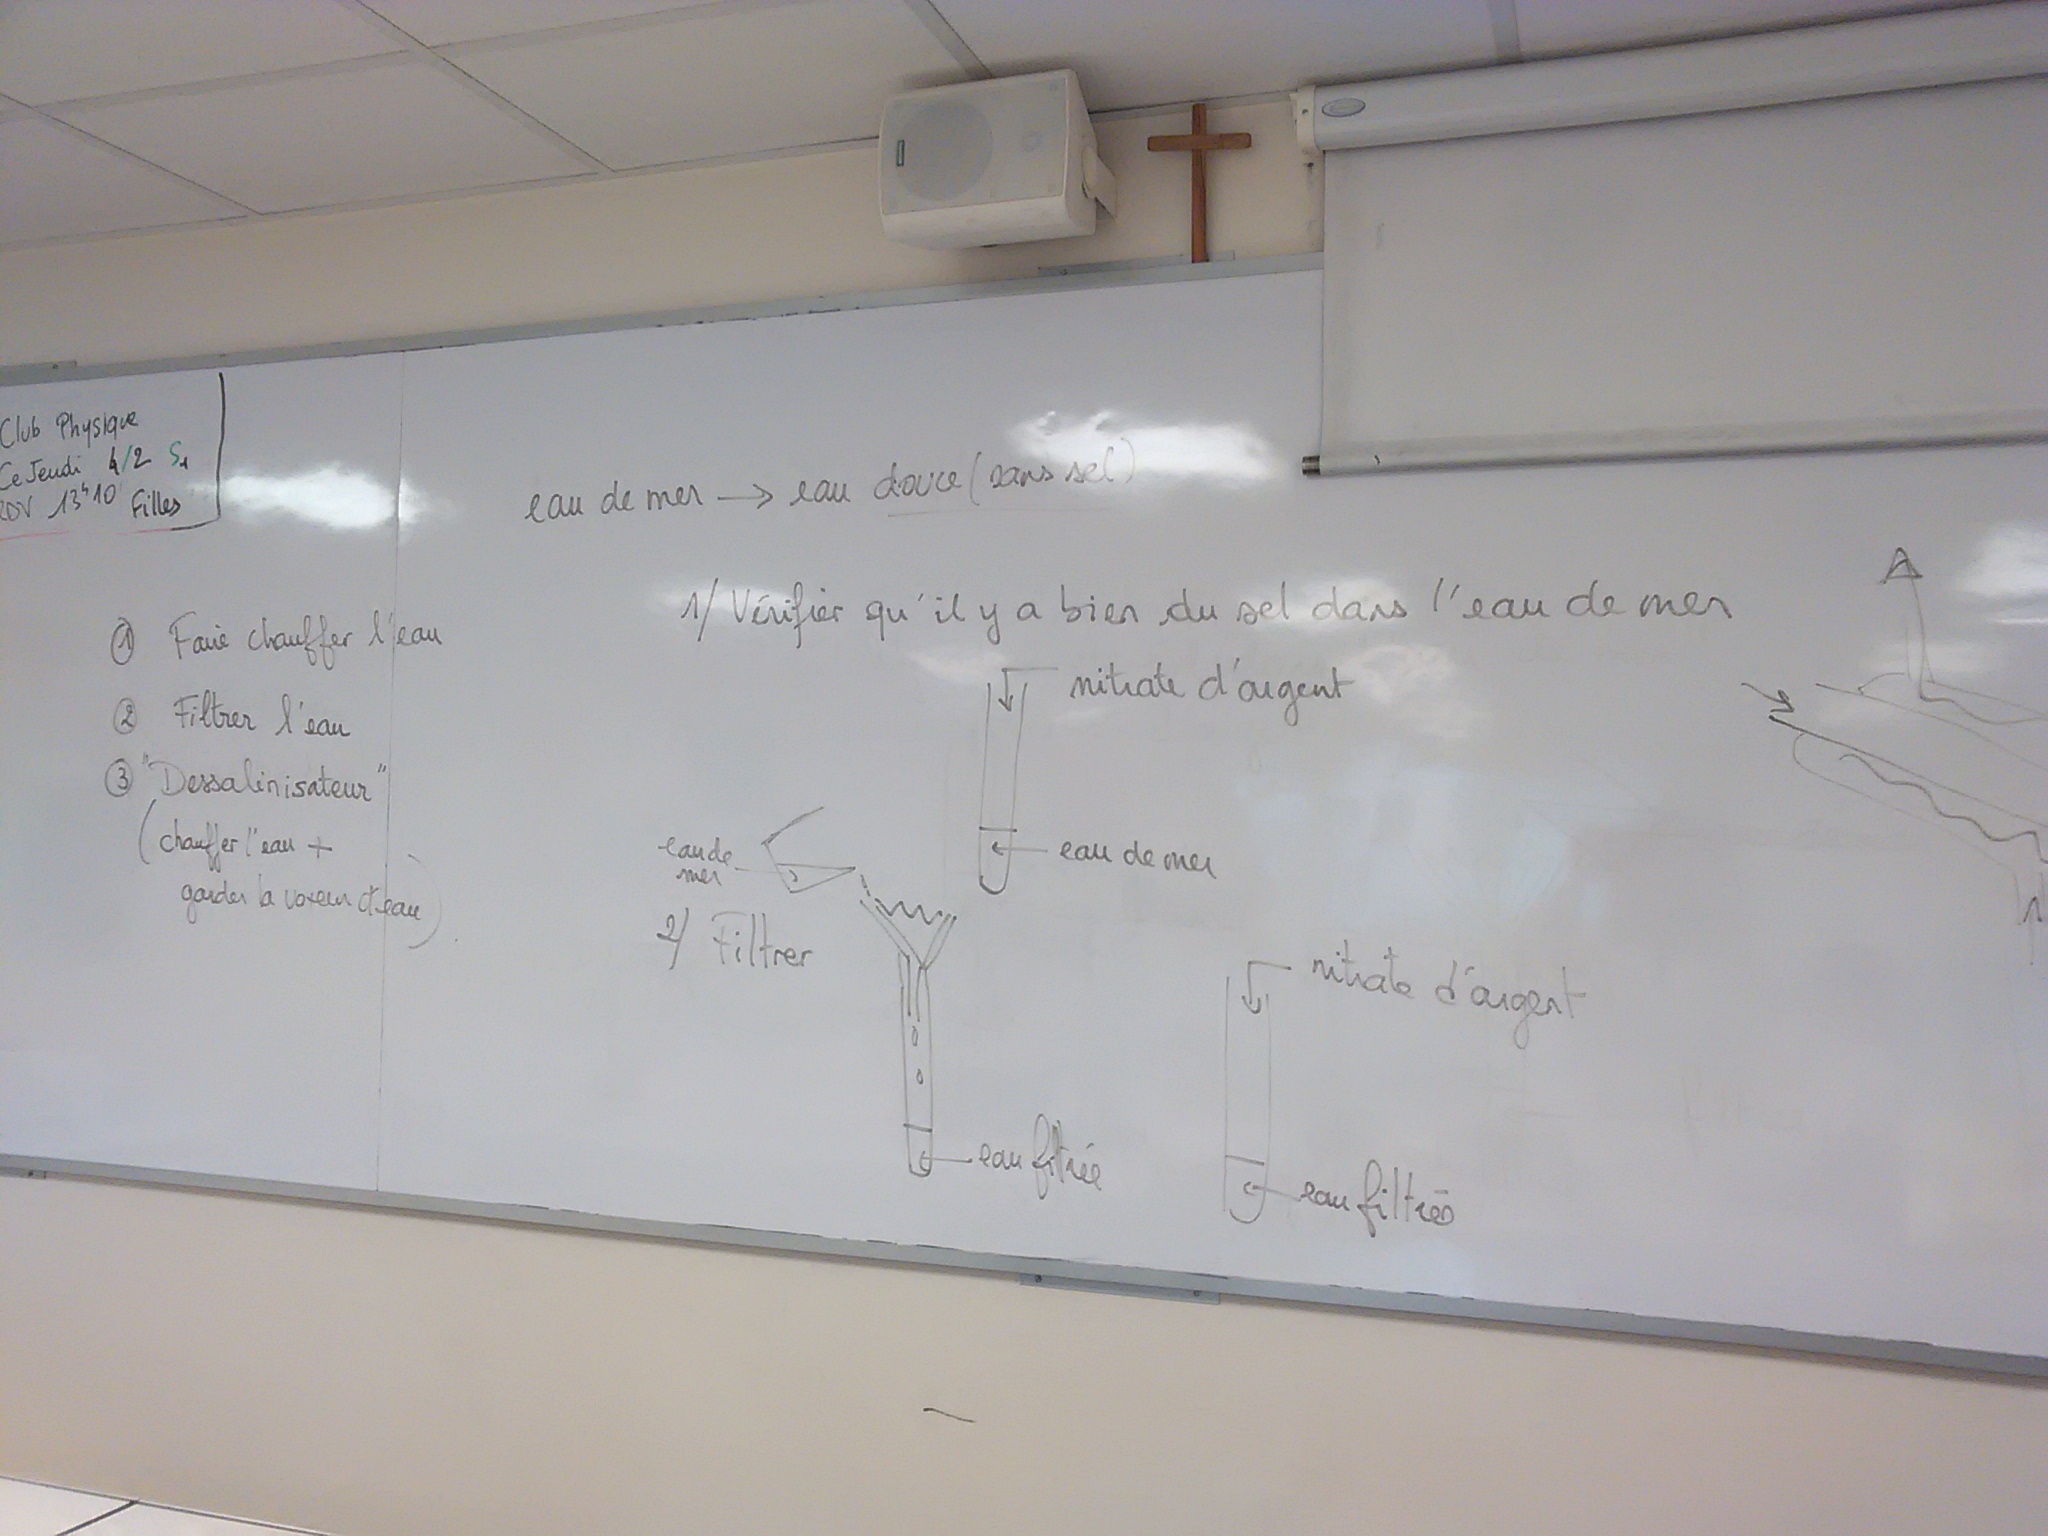 Club Physique
Ce Jeudi 4/2 S1
RDV 13h10 Filles
eau de mer → eau douce (sans sel)
① Faire chauffer l'eau
② Filtrer l'eau
③ "Dessalinisateur"
(chauffer l'eau +
garder la vapeur d'eau)
1/ Vérifier qu'il y a bien du sel dans l'eau de mer
nitrate d'argent
eau de mer
eau de
mer
2/ Filtrer
eau filtrée
nitrate d'argent
eau filtrée